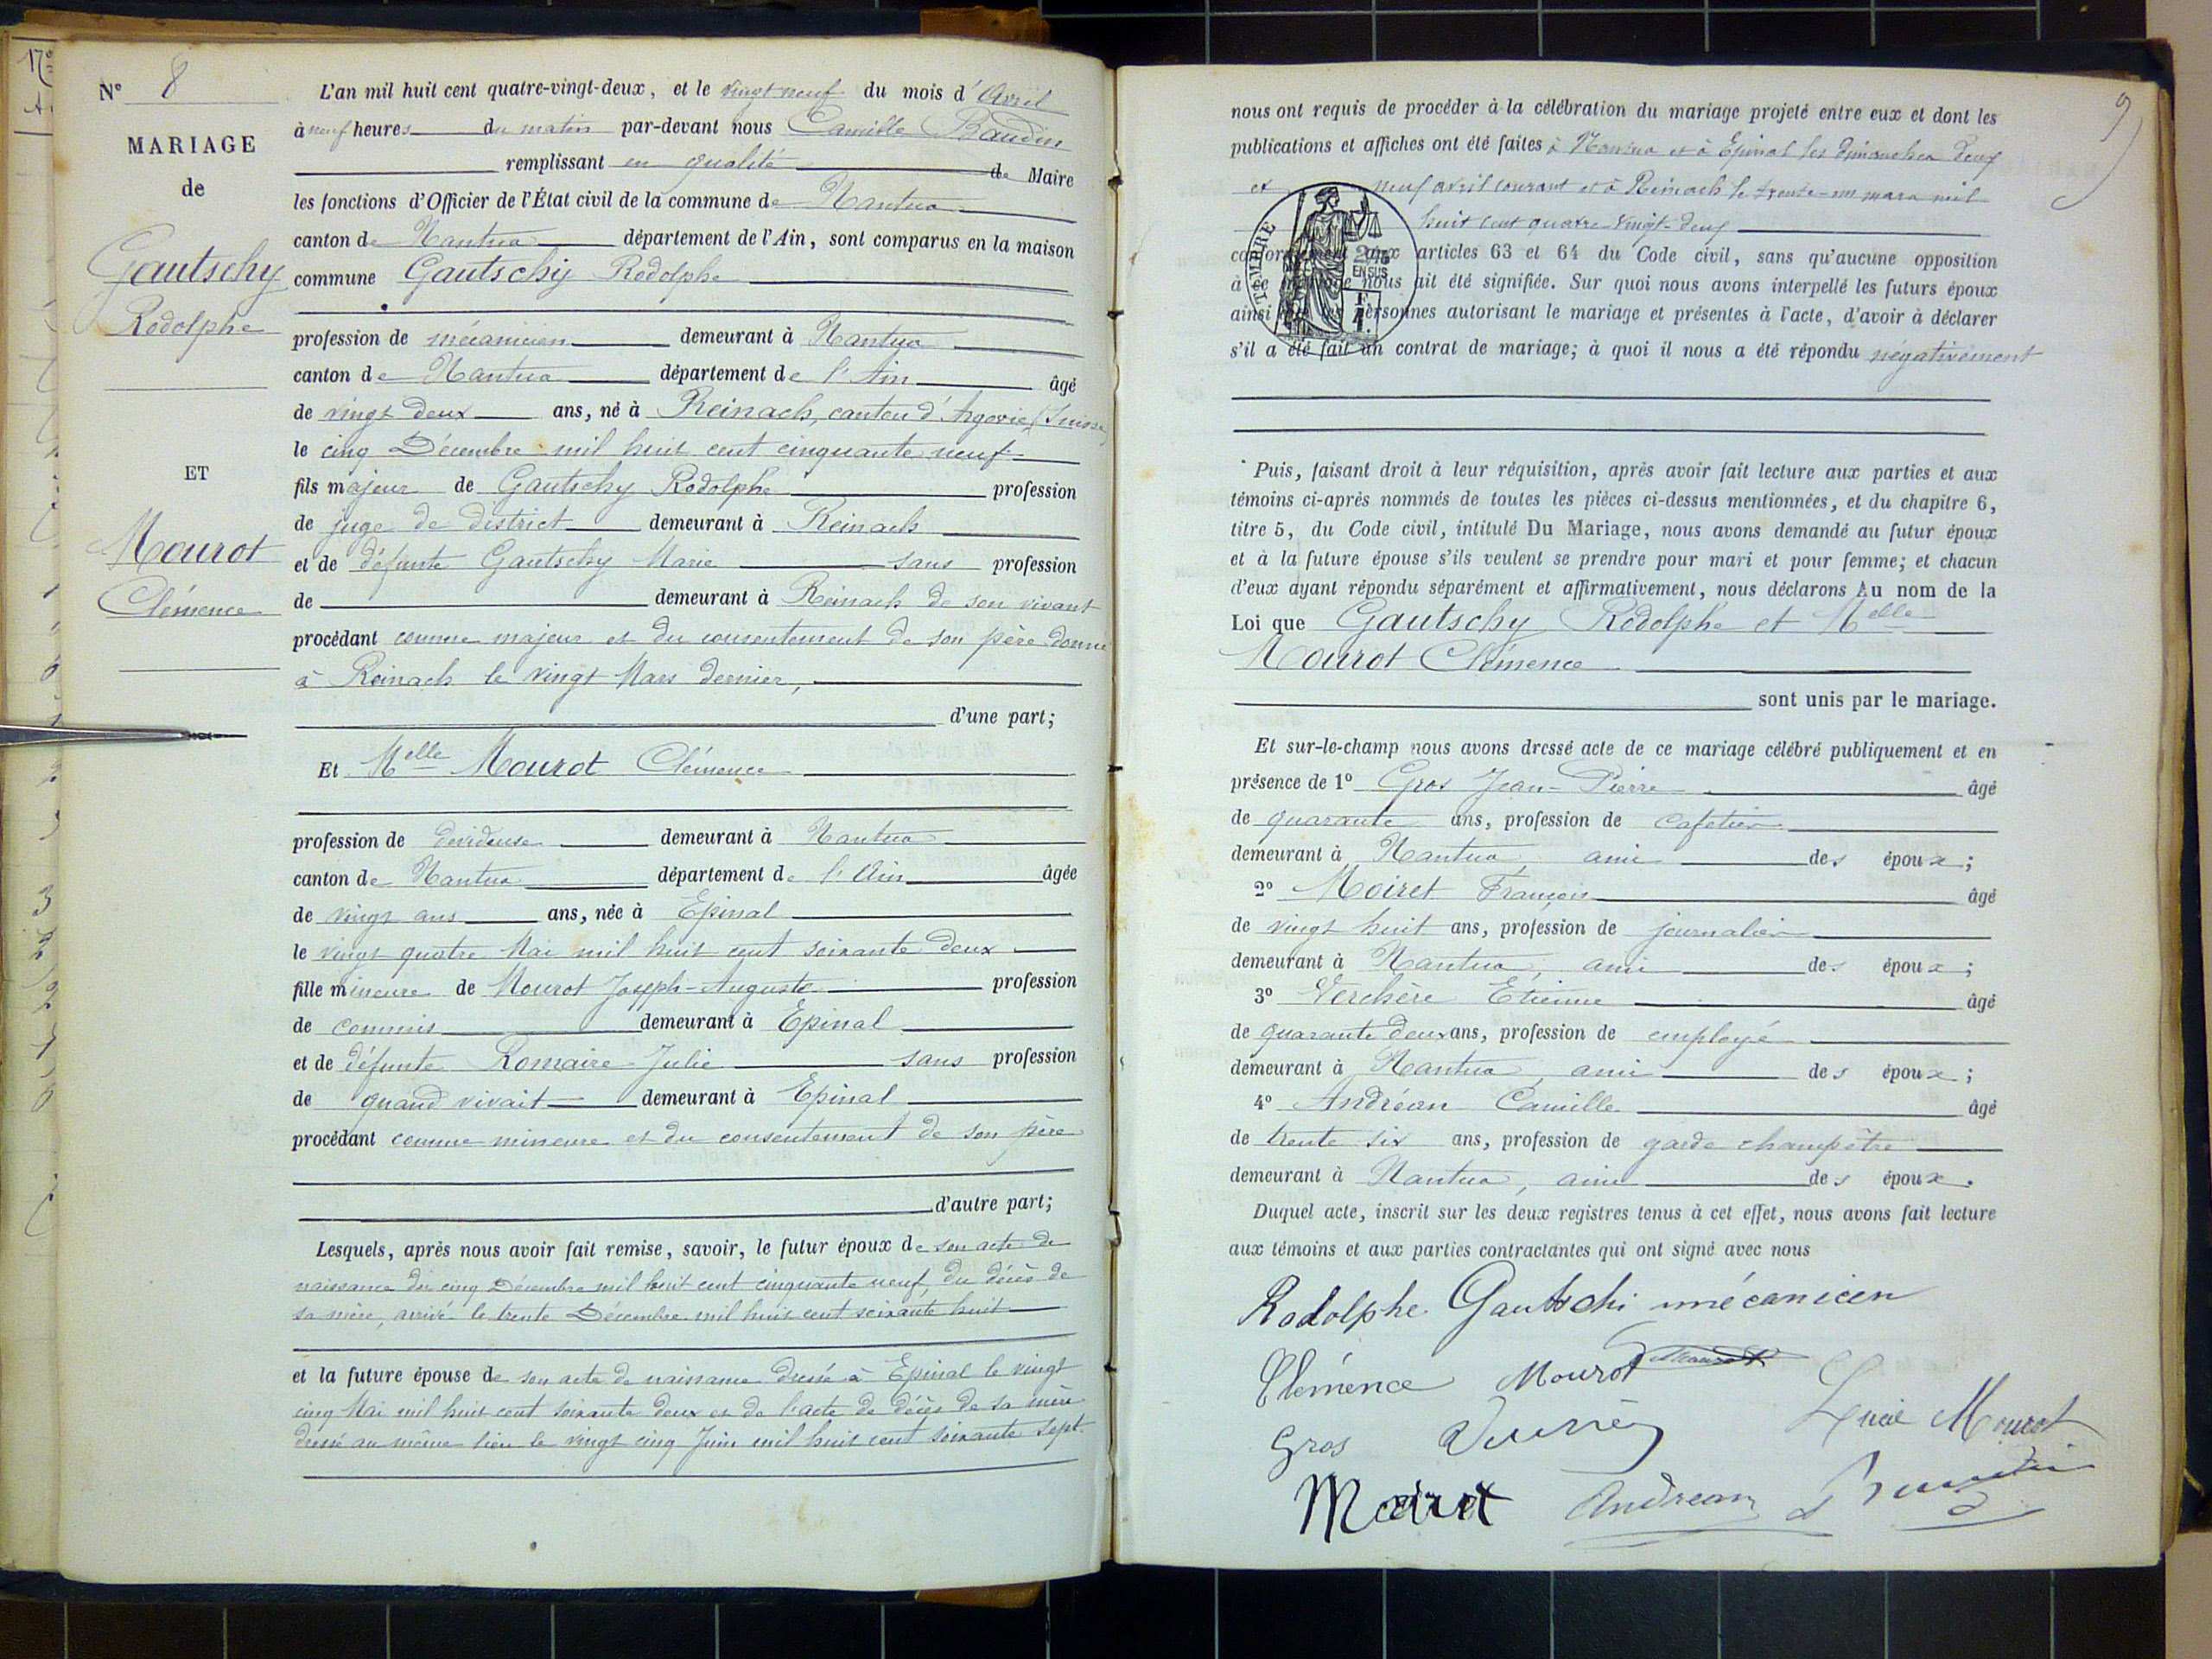 17e
N° 8
MARIAGE
de
Gautschy
Rodolphe
ET
Mourot
Clémence
L'an mil huit cent quatre-vingt-deux, et le vingt neuf du mois d'Avril
à neuf heures du matin par-devant nous Camille Baudin
remplissant en qualité de Maire
les fonctions d'Officier de l'État civil de la commune de Nantua
canton de Nantua département de l'Ain, sont comparus en la maison
commune Gautschy Rodolphe
profession de mécanicien demeurant à Nantua
canton de Nantua département de l'Ain âgé
de vingt deux ans, né à Reinach, canton d'Argovie (Suisse)
le cinq Décembre mil huit cent cinquante neuf
fils majeur de Gautschy Rodolphe profession
de juge de district demeurant à Reinach
et de défunte Gautschy Marie sans profession
de demeurant à Reinach de son vivant
procédant comme majeur et du consentement de son père donné
à Reinach le vingt Mars dernier,
d'une part;
Et Melle Mourot Clémence
profession de devideuse demeurant à Nantua
canton de Nantua département de l'Ain âgée
de vingt ans ans, née à Epinal
le vingt quatre Mai mil huit cent soixante deux
fille mineure de Mourot Joseph-Auguste profession
de commis demeurant à Epinal
et de défunte Romaire Julie sans profession
de quand vivait demeurant à Epinal
procédant comme mineure et du consentement de son père
d'autre part;
Lesquels, après nous avoir fait remise, savoir, le futur époux de son acte de
naissance du cinq Décembre mil huit cent cinquante neuf, du décès de
sa mère, arrivé le trente Décembre mil huit cent soixante huit
et la future épouse de son acte de naissance dressé à Epinal le vingt
cinq Mai mil huit cent soixante deux et de l'acte de décès de sa mère
dressé au même lieu le vingt cinq Juin mil huit cent soixante sept.
9
nous ont requis de procéder à la célébration du mariage projeté entre eux et dont les
publications et affiches ont été faites à Nantua et à Epinal les dimanches deux
et neuf avril courant et à Reinach le trente-un mars mil
huit cent quatre-vingt-deux
conformément aux articles 63 et 64 du Code civil, sans qu'aucune opposition
à ce mariage nous ait été signifiée. Sur quoi nous avons interpellé les futurs époux
ainsi que les personnes autorisant le mariage et présentes à l'acte, d'avoir à déclarer
s'il a été fait un contrat de mariage; à quoi il nous a été répondu négativement
TIMBRE
EN SUS
Puis, faisant droit à leur réquisition, après avoir fait lecture aux parties et aux
témoins ci-après nommés de toutes les pièces ci-dessus mentionnées, et du chapitre 6,
titre 5, du Code civil, intitulé Du Mariage, nous avons demandé au futur époux
et à la future épouse s'ils veulent se prendre pour mari et pour femme; et chacun
d'eux ayant répondu séparément et affirmativement, nous déclarons Au nom de la
Loi que Gautschy Rodolphe et Melle
Mourot Clémence
sont unis par le mariage.
Et sur-le-champ nous avons dressé acte de ce mariage célébré publiquement et en
présence de 1° Gros Jean-Pierre âgé
de quarante ans, profession de cafetier
demeurant à Nantua, ami des époux;
2° Moiret François âgé
de vingt huit ans, profession de journalier
demeurant à Nantua, ami des époux;
3° Verchère Etienne âgé
de quarante deux ans, profession de employé
demeurant à Nantua, ami des époux;
4° Andréan Camille âgé
de trente six ans, profession de garde champêtre
demeurant à Nantua, ami des époux.
Duquel acte, inscrit sur les deux registres tenus à cet effet, nous avons fait lecture
aux témoins et aux parties contractantes qui ont signé avec nous
Rodolphe Gautschi mécanicien
Clémence Mourot
Gros Lucie Mourot
Moiret Andréan